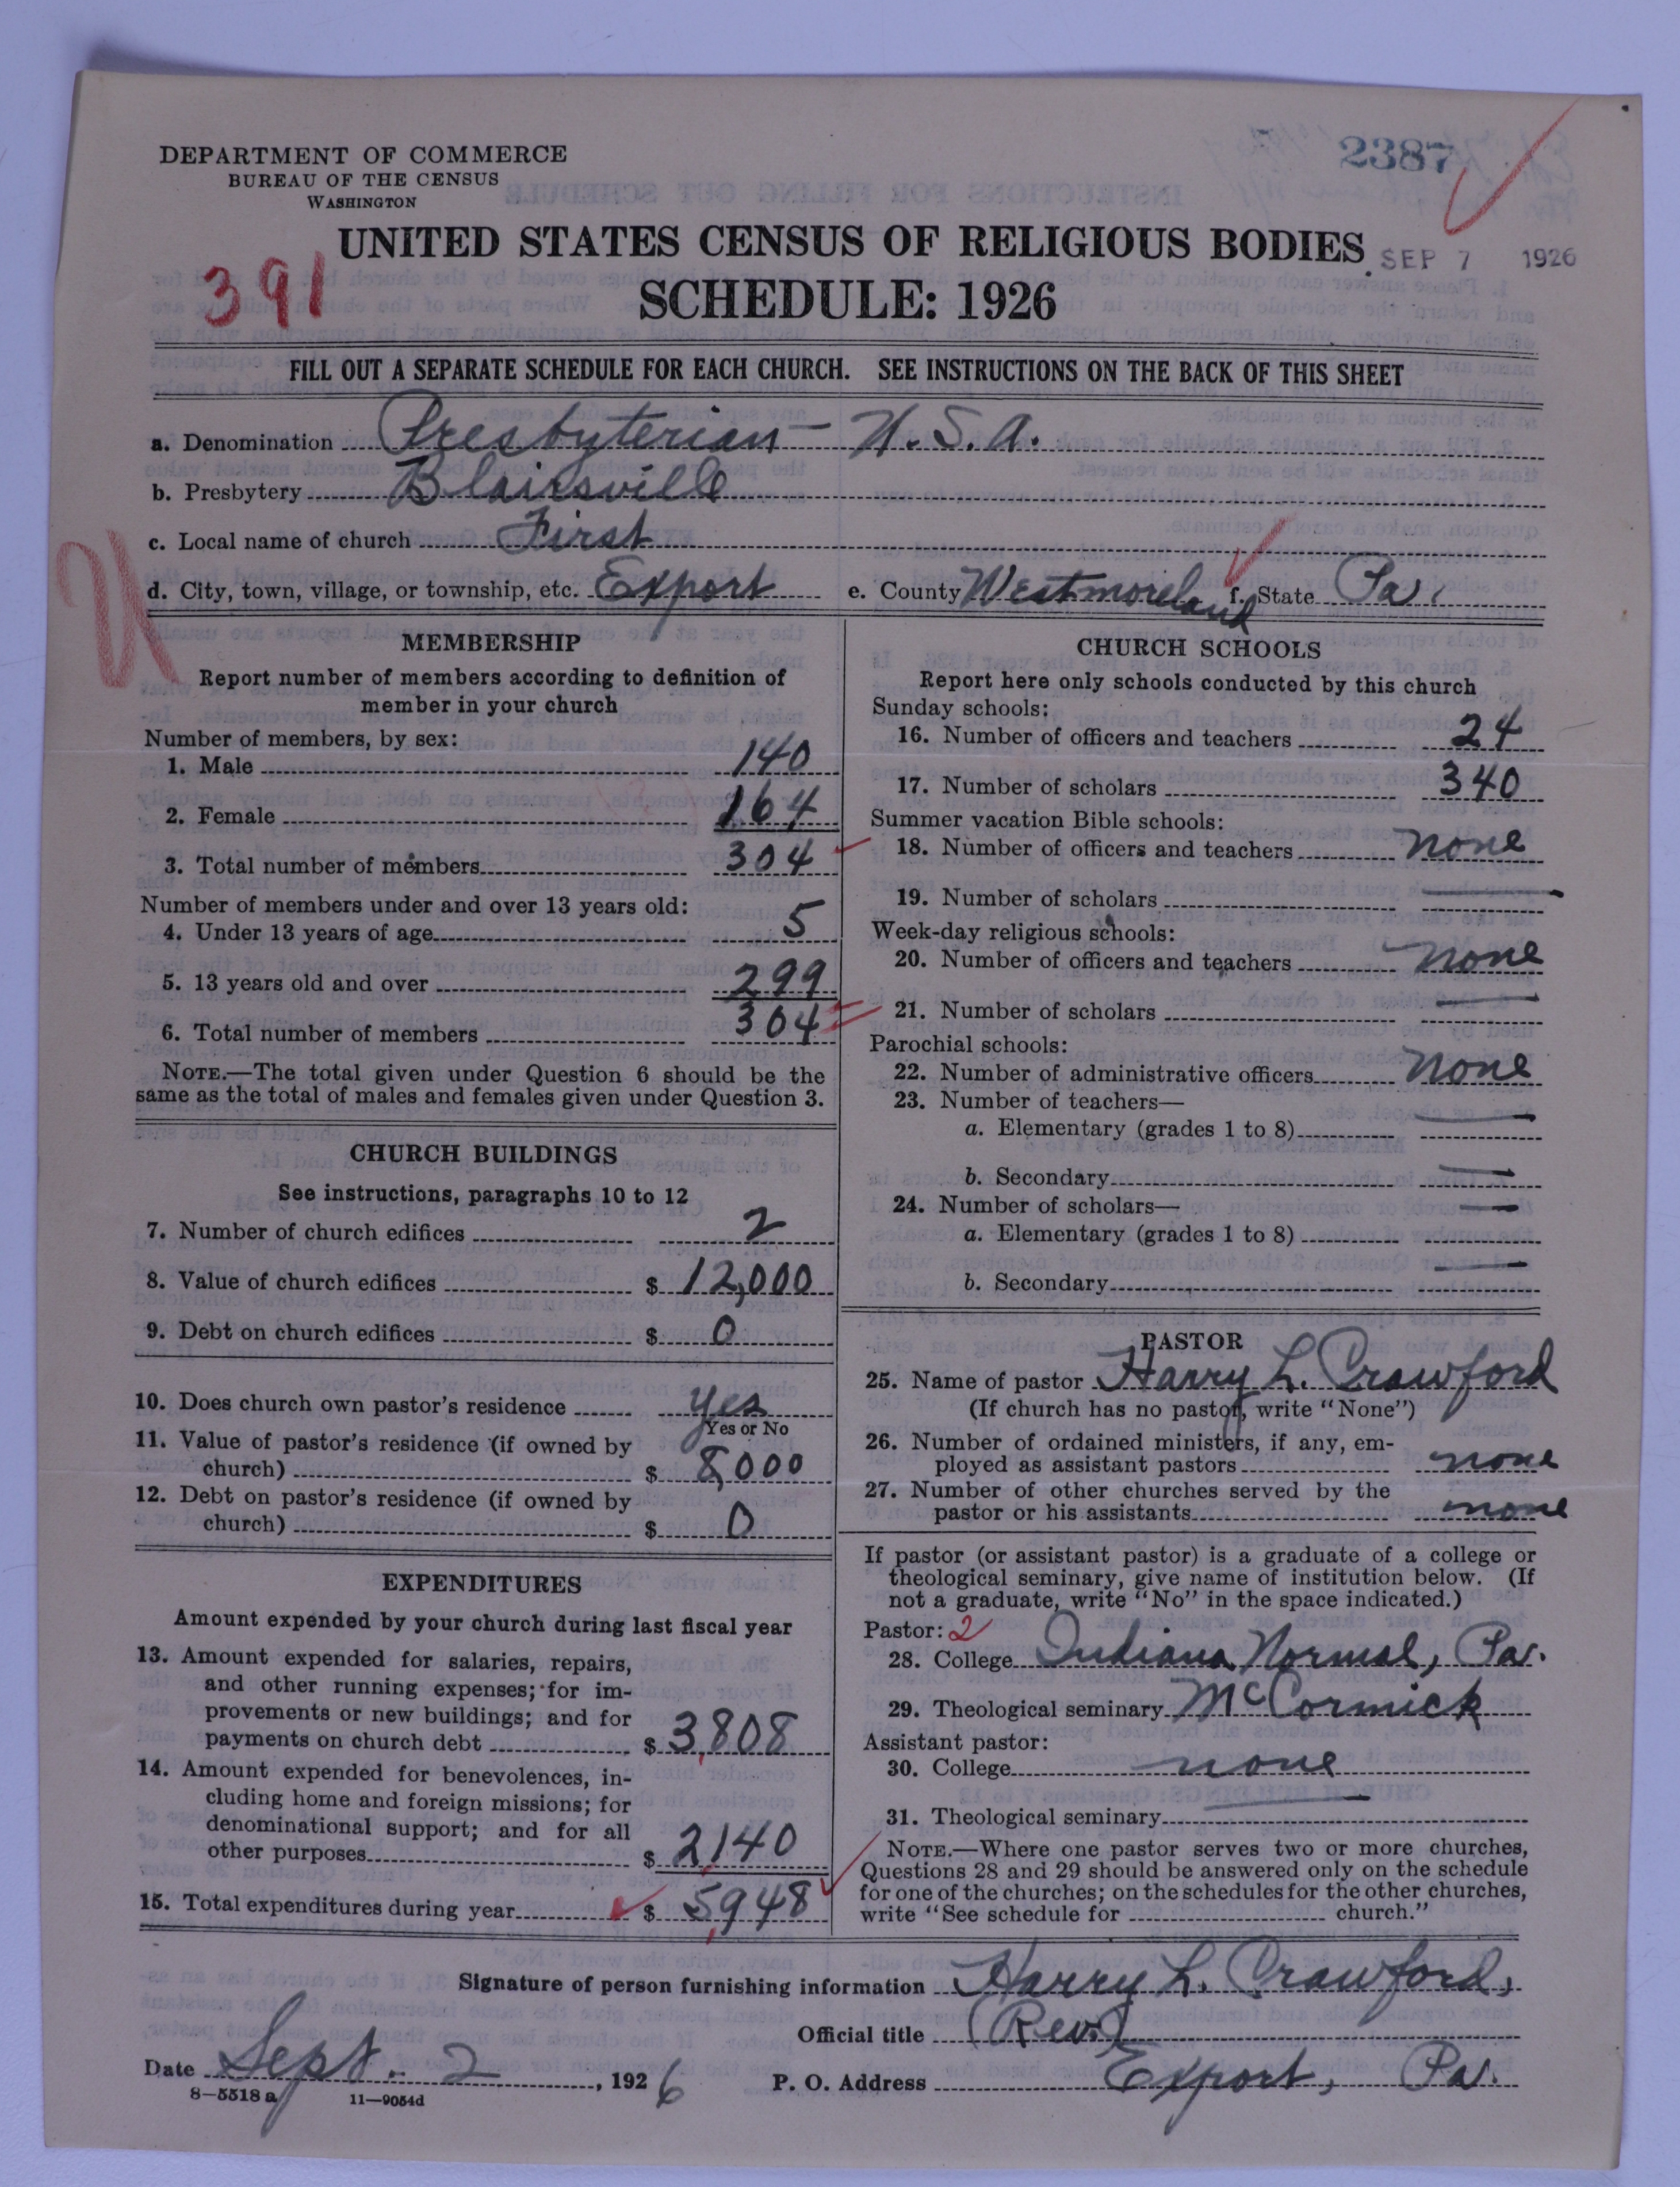 2387
DEPARTMENT OF COMMERCE
BUREAU OF THE CENSUS
WASHINGTON
UNITED STATES CENSUS OF RELIGIOUS BODIES
SEP 7 1926
391
SCHEDULE: 1926
FILL OUT A SEPARATE SCHEDULE FOR EACH CHURCH. SEE INSTRUCTIONS ON THE BACK OF THIS SHEET
a. Denomination Presbyterian — U.S.A.
b. Presbytery Blairsville
c. Local name of church First
d. City, town, village, or township, etc. Export e. County Westmoreland f. State Pa.
MEMBERSHIP
Report number of members according to definition of
member in your church
Number of members, by sex:
1. Male 140
2. Female 164
3. Total number of members 304
Number of members under and over 13 years old:
4. Under 13 years of age 5
5. 13 years old and over 299
6. Total number of members 304
NOTE.—The total given under Question 6 should be the
same as the total of males and females given under Question 3.
CHURCH BUILDINGS
See instructions, paragraphs 10 to 12
7. Number of church edifices 2
8. Value of church edifices $ 12,000
9. Debt on church edifices $ 0
10. Does church own pastor's residence Yes
Yes or No
11. Value of pastor's residence (if owned by
church) $ 8,000
12. Debt on pastor's residence (if owned by
church) $ 0
EXPENDITURES
Amount expended by your church during last fiscal year
13. Amount expended for salaries, repairs,
and other running expenses; for im-
provements or new buildings; and for
payments on church debt $ 3,808
14. Amount expended for benevolences, in-
cluding home and foreign missions; for
denominational support; and for all
other purposes $ 2,140
15. Total expenditures during year $ 5,948
CHURCH SCHOOLS
Report here only schools conducted by this church
Sunday schools:
16. Number of officers and teachers 24
17. Number of scholars 340
Summer vacation Bible schools:
18. Number of officers and teachers none
19. Number of scholars —
Week-day religious schools:
20. Number of officers and teachers none
21. Number of scholars —
Parochial schools:
22. Number of administrative officers none
23. Number of teachers—
a. Elementary (grades 1 to 8) —
b. Secondary —
24. Number of scholars—
a. Elementary (grades 1 to 8) —
b. Secondary —
PASTOR
25. Name of pastor Harry L. Crawford
(If church has no pastor, write "None")
26. Number of ordained ministers, if any, em-
ployed as assistant pastors none
27. Number of other churches served by the
pastor or his assistants none
If pastor (or assistant pastor) is a graduate of a college or
theological seminary, give name of institution below. (If
not a graduate, write "No" in the space indicated.)
Pastor: 2
28. College Indiana Normal, Pa.
29. Theological seminary McCormick
Assistant pastor:
30. College none
31. Theological seminary —
NOTE.—Where one pastor serves two or more churches,
Questions 28 and 29 should be answered only on the schedule
for one of the churches; on the schedules for the other churches,
write "See schedule for church."
Signature of person furnishing information Harry L. Crawford,
Official title (Rev.)
Date Sept. 2, 1926 P. O. Address Export, Pa.
8—5518 a 11—9054d